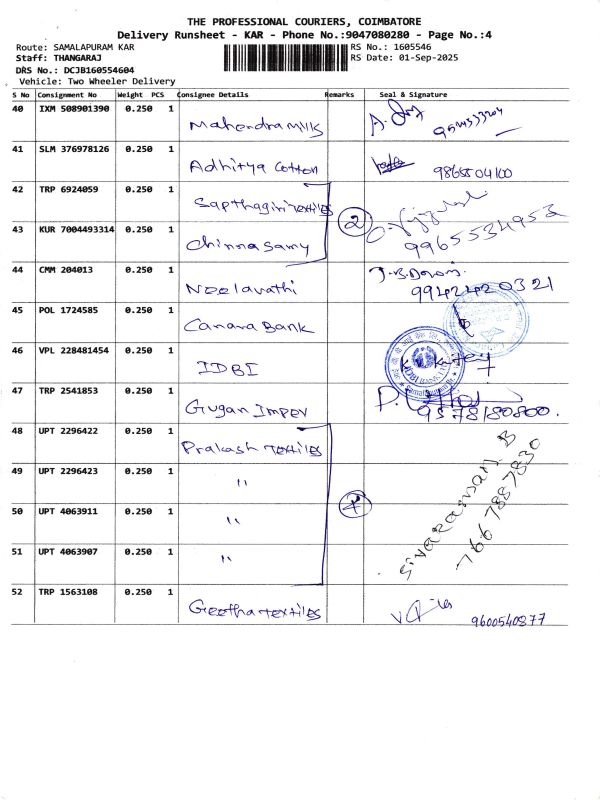 THE PROFESSIONAL COURIERS, COIMBATORE
Delivery Runsheet - KAR - Phone No.:9047080280 - Page No.:4
Route: SAMALAPURAM KAR RS No.: 1605546
Staff: THANGARAJ RS Date: 01-Sep-2025
DRS No.: DCJB160554604
Vehicle: Two Wheeler Delivery
S No Consignment No Weight PCS Consignee Details Remarks Seal & Signature
40 IXM 508901390 0.250 1 Mahendra Mills
41 SLM 376978126 0.250 1 Adhitya Cotton
42 TRP 6924059 0.250 1 Sapthagiri Textiles 2
43 KUR 7004493314 0.250 1 Chinnasamy 9965534953
44 CMM 204013 0.250 1 Neelavathi 9942420321
45 POL 1724585 0.250 1 Canara Bank
46 VPL 228481454 0.250 1 IDBI
47 TRP 2541853 0.250 1 Gugan Impex 9578180800.
48 UPT 2296422 0.250 1 Prakash Textiles
49 UPT 2296423 0.250 1 "
50 UPT 4063911 0.250 1 " 4
51 UPT 4063907 0.250 1 "
Sivaramani. B
7667887830
52 TRP 1563108 0.250 1 Geetha Textiles 9600540877